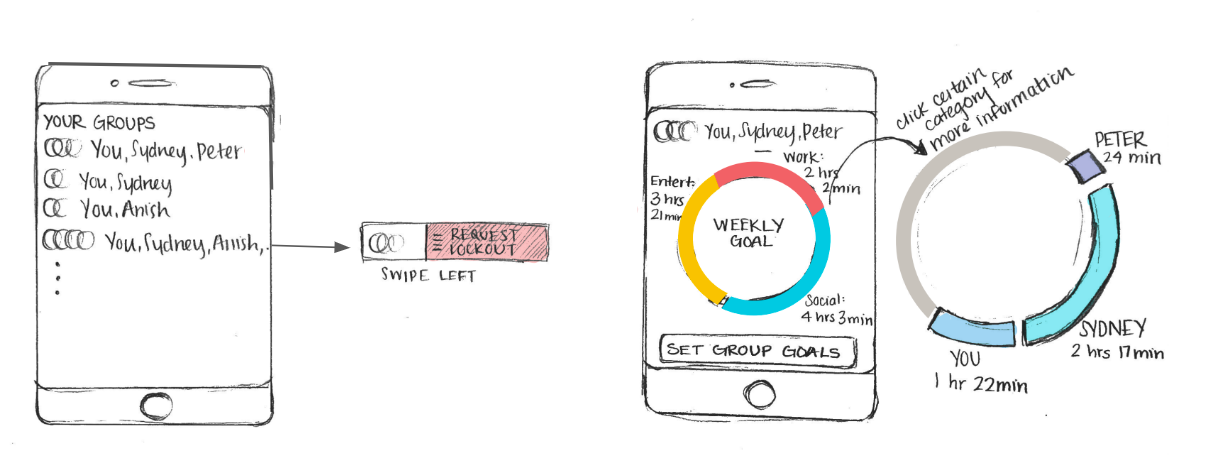 YOUR GROUPS
You, Sydney, Peter
You, Sydney
You, Anish
You, Sydney, Anish, .
REQUEST
LOCKOUT
SWIPE LEFT
You, Sydney, Peter
Work:
2 hrs
2 min
Entert:
3 hrs
21 min
WEEKLY
GOAL
Social:
4 hrs 3 min
SET GROUP GOALS
click certain
category for
more information
PETER
24 min
SYDNEY
2 hrs 17 min
YOU
1 hr 22 min